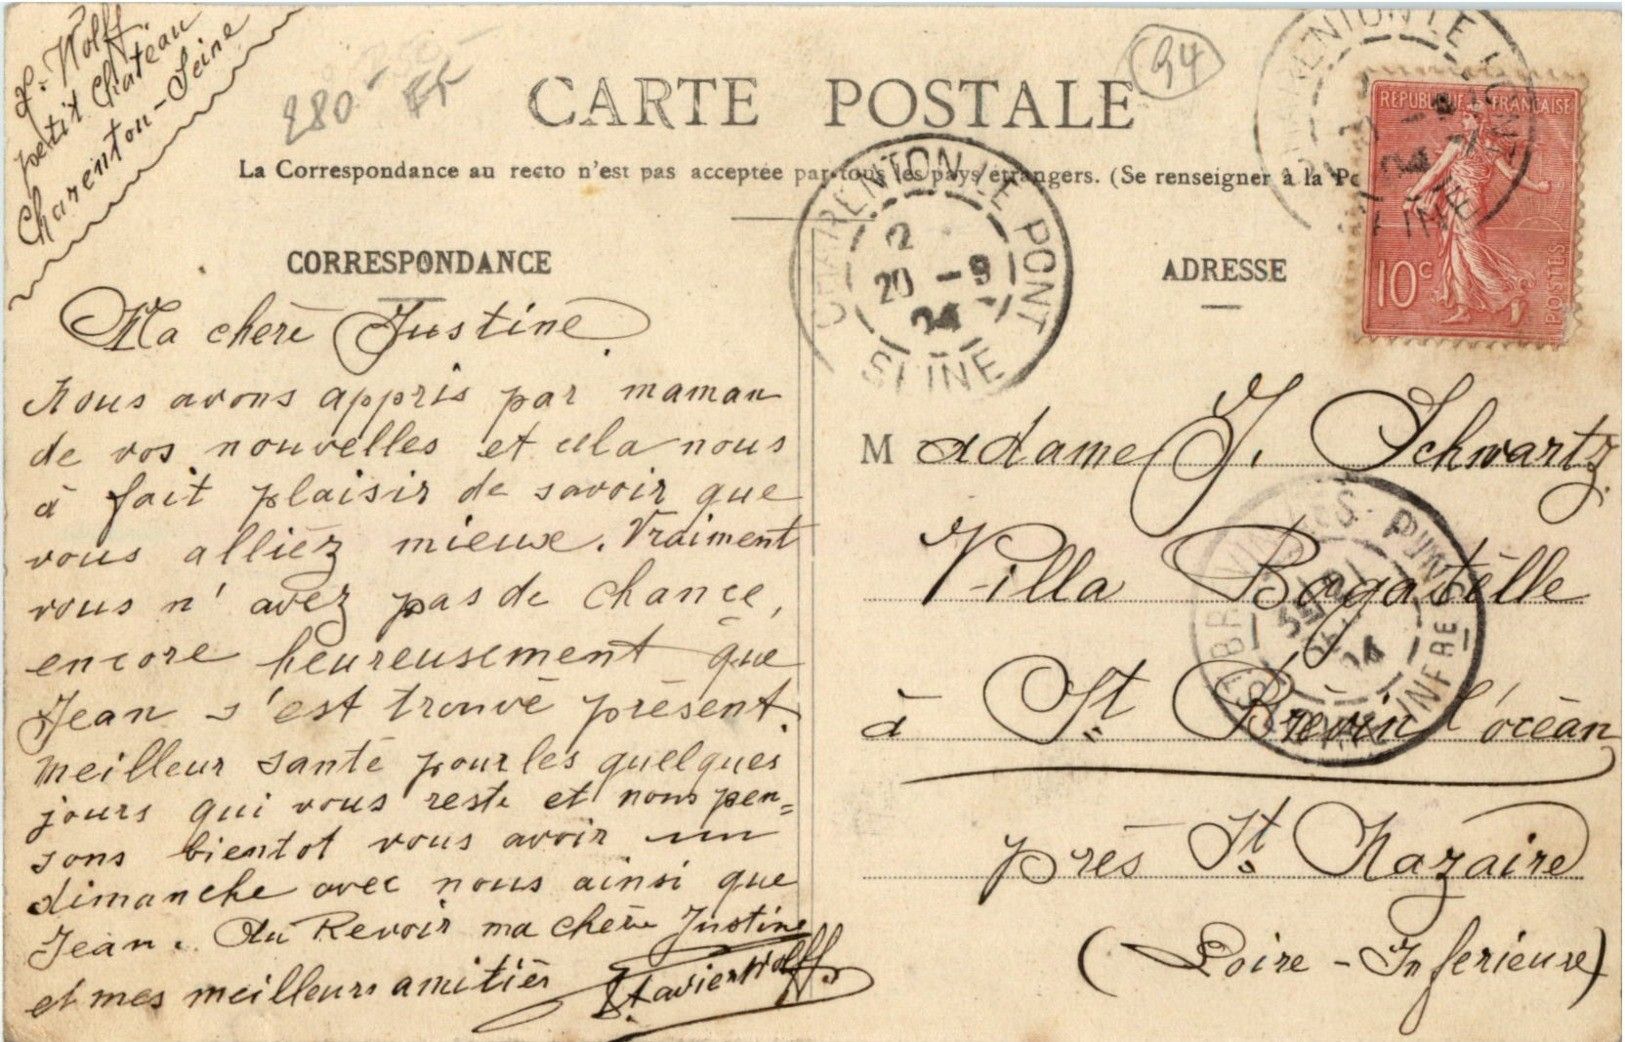 X. Wolff
petit Château
Charenton-Seine
280 - FF
94
CARTE POSTALE
La Correspondance au recto n'est pas acceptée par tous les pays étrangers. (Se renseigner à la
CORRESPONDANCE
ADRESSE
REPUBLIQUE FRANÇAISE
10c
POSTES
CHARENTON LE PONT
2
20 - 9
04
SEINE
Ma cherè Justine.
Nous avons appris par maman
de vos nouvelles et cela nous
à fait plaisir de savoir que
vous alliéz mieux. Vraiment
vous n' avez pas de chance,
encore heureusement que
Jean s'est trouvé présent.
meilleur santé pour les quelques
jours qui vous reste et nous pen=
sons bientot vous avoir un
dimanche avec nous ainsi que
Jean. Au Revoir ma chère Justine
et mes meilleurs amitiés Xavier Wolff.
Madame J. Schwartz.
Villa Bagatèlle
à St Brévin l'océan
près St Nazaire
(Loire-Inferieure)